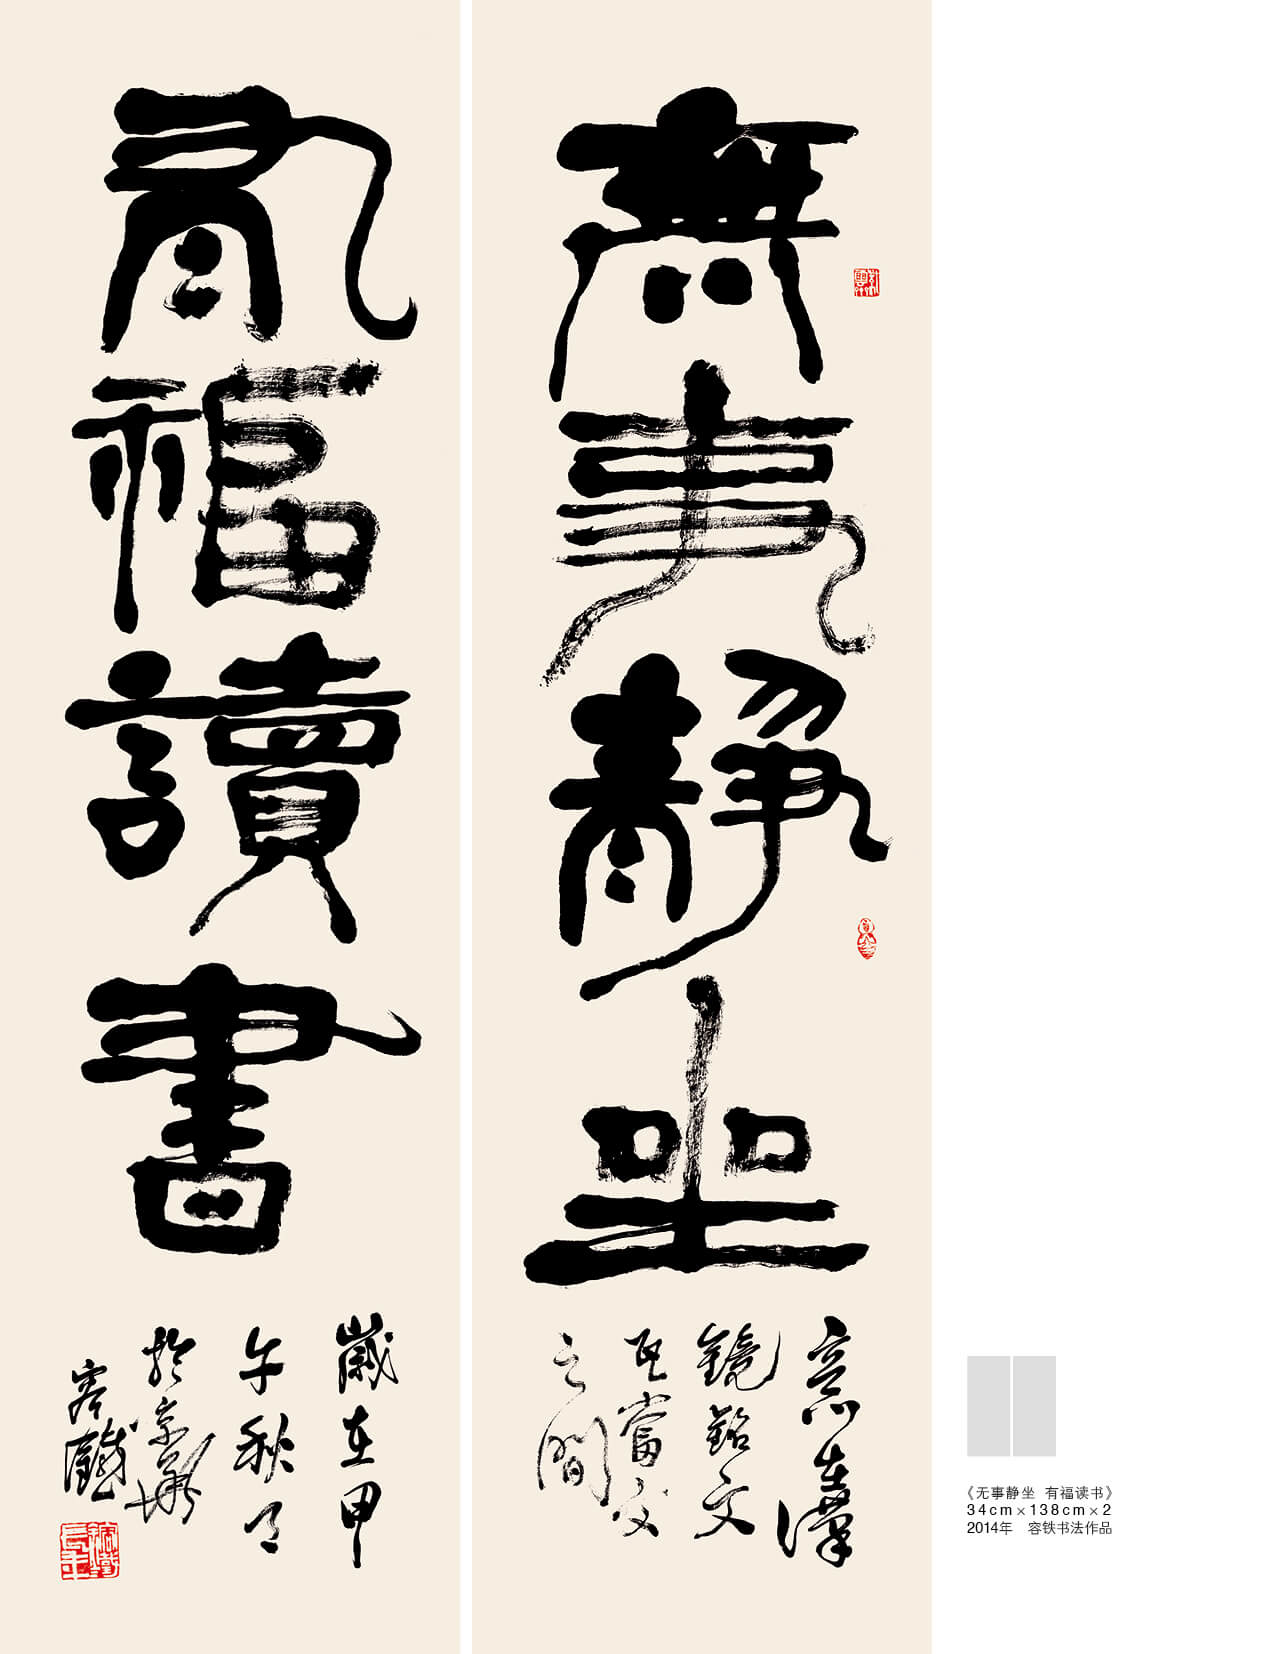 無事靜坐
意在漢
鏡銘文
瓦當文
之間
有福讀書
歲在甲
午秋月
於京華
容鐵
《无事静坐 有福读书》
34cm×138cm×2
2014年 容铁书法作品